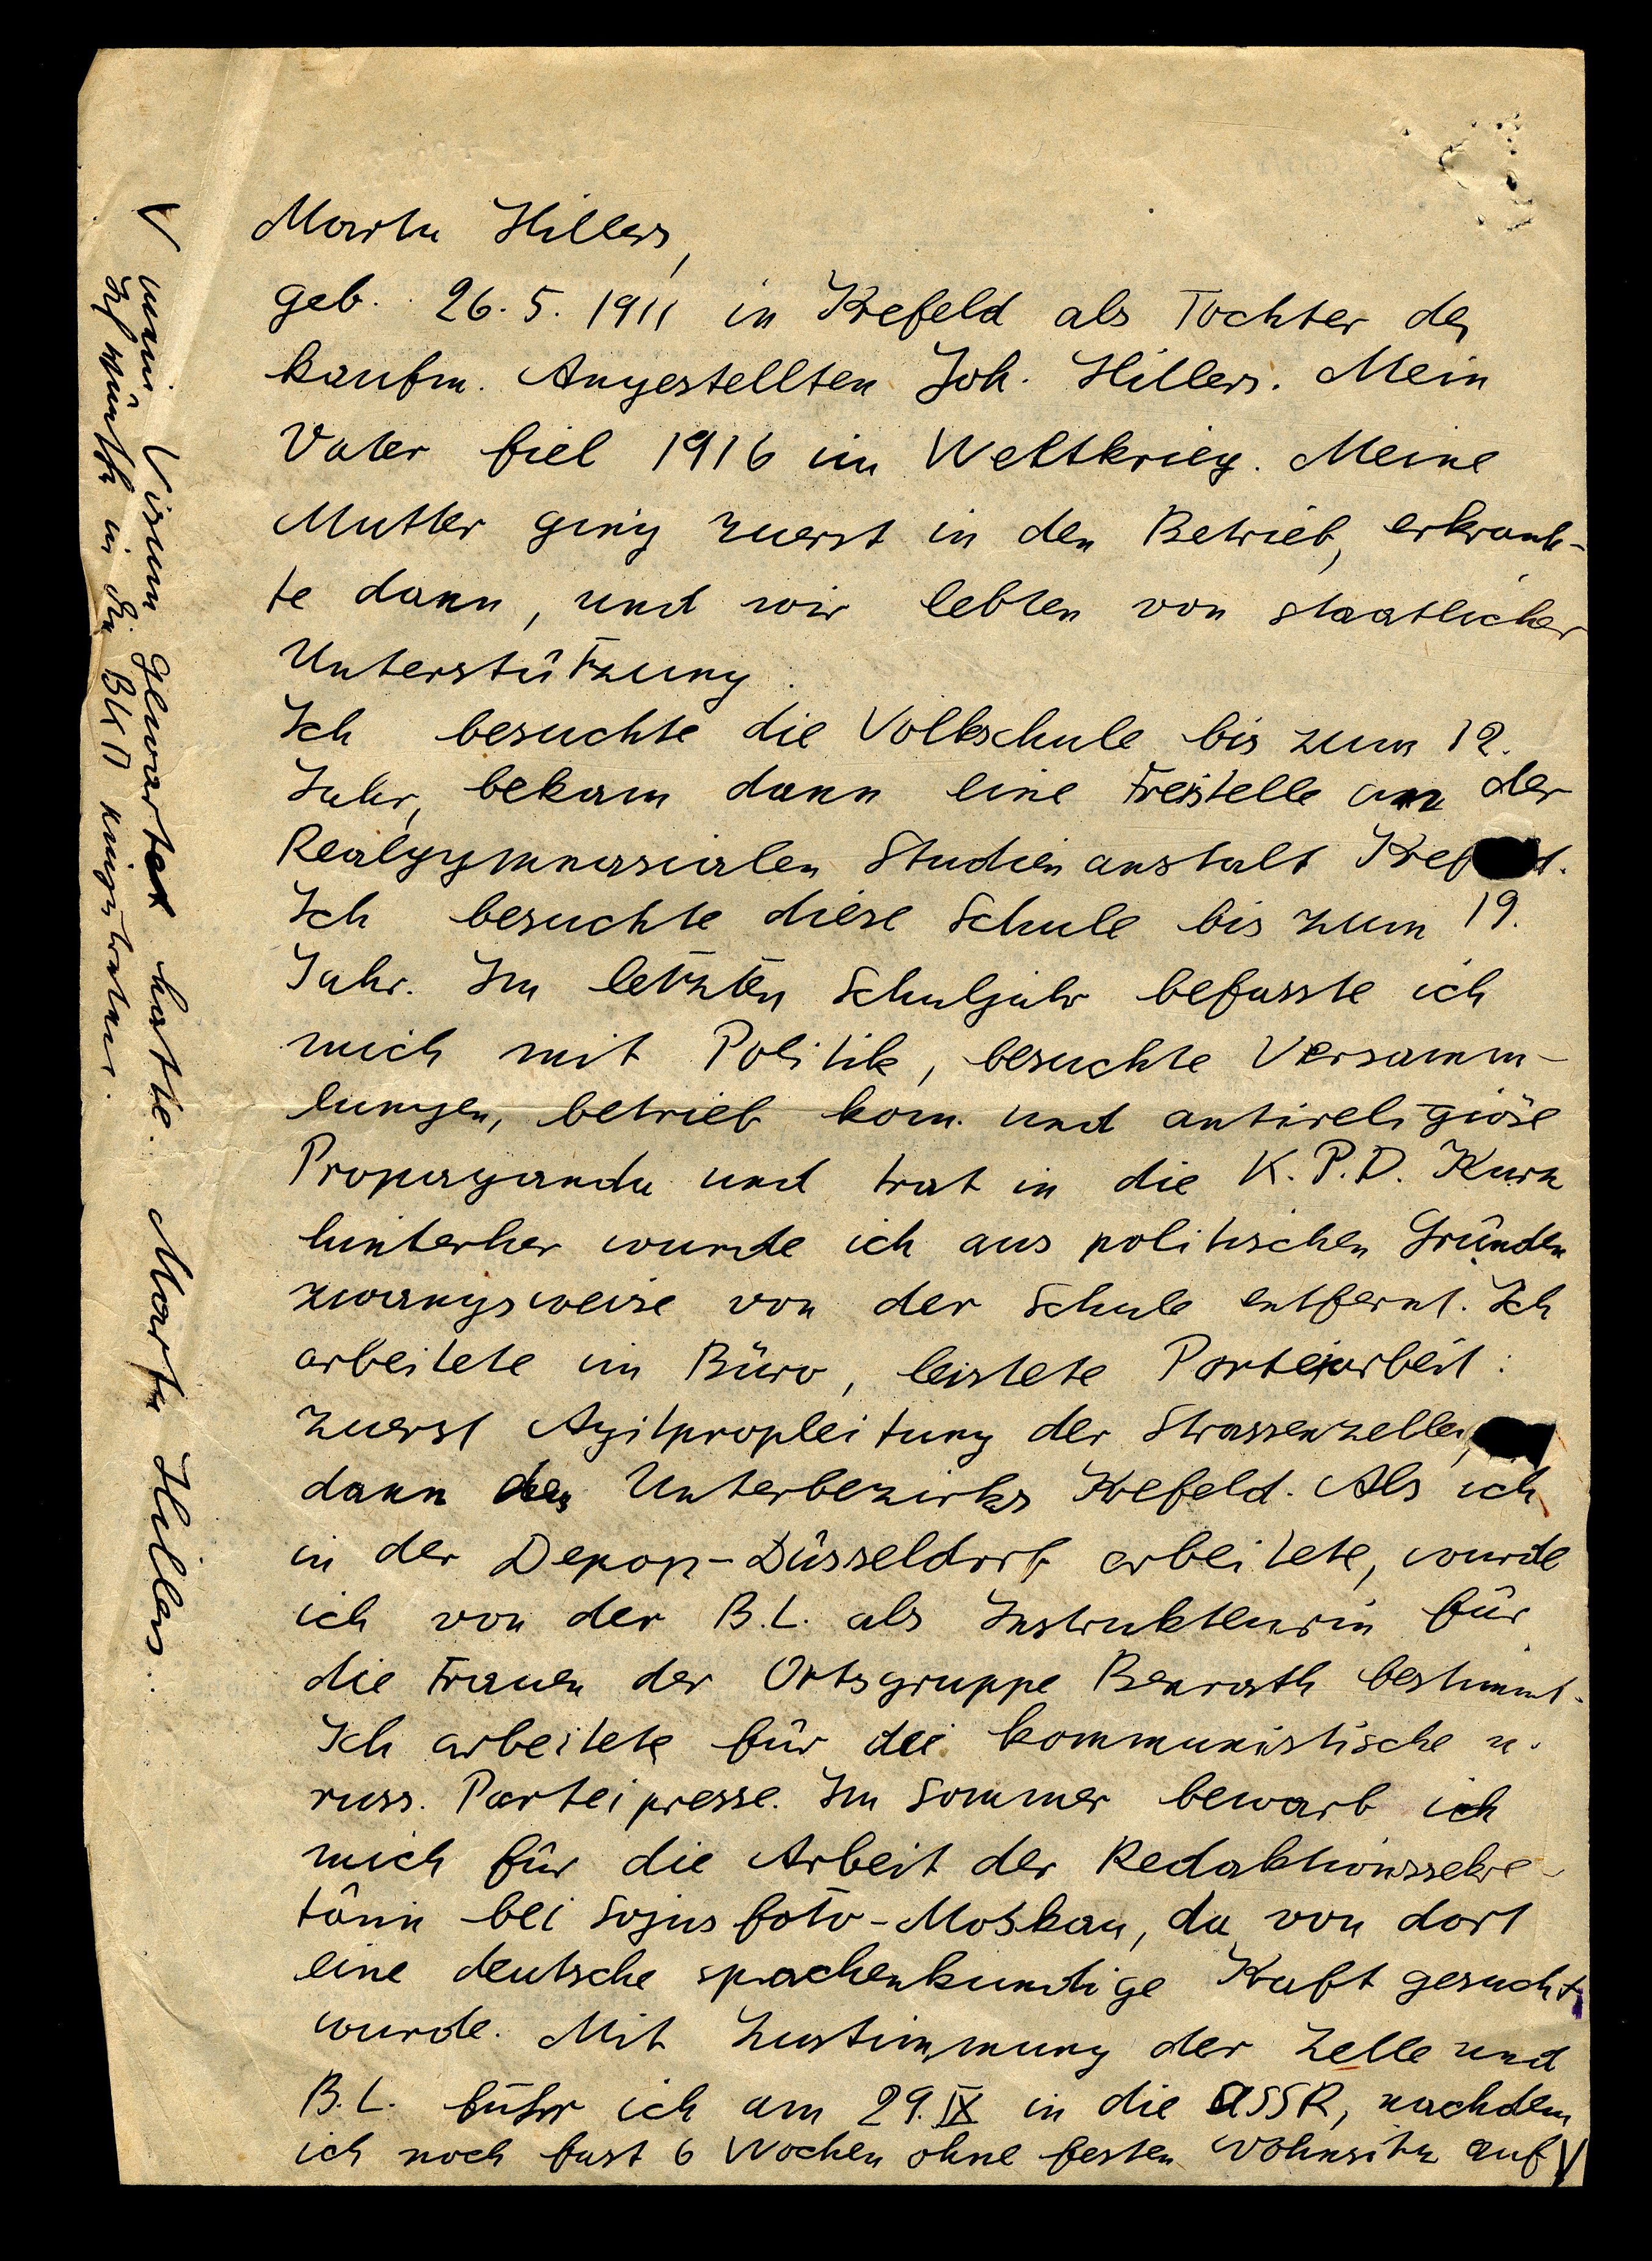 Marta Hillers,
geb. 26.5.1911 in Krefeld als Tochter des
kaufm. Angestellten Joh. Hillers. Mein
Vater fiel 1916 im Weltkrieg. Meine
Mutter ging zuerst in den Betrieb, erkrank-
te dann, und wir lebten von staatlicher
Unterstützung.
Ich besuchte die Volkschule bis zum 12.
Jahr, bekam dann eine Freistelle an der
Realgymnasialen Studienanstalt Krefeld.
Ich besuchte diese Schule bis zum 19.
Jahr. Im letzten Schuljahr befasste ich
mich mit Politik, besuchte Versamm-
lungen, betrieb kom. und antireligiöse
Propaganda und trat in die K.P.D. Kurz
hinterher wurde ich aus politischen Gründen
zwangsweise von der Schule entfernt. Ich
arbeitete im Büro, leistete Parteiarbeit:
zuerst Agitpropleitung der Strassenzelle,
dann des Unterbezirks Krefeld. Als ich
in der Derop-Düsseldorf arbeitete, wurde
ich von der B.L. als Instrukteurin für
die Frauen der Ortsgruppe Benrath bestimmt.
Ich arbeitete für die kommunistische u.
russ. Parteipresse. Im Sommer bewarb ich
mich für die Arbeit der Redaktionssekre-
tärin bei Sojusfoto-Moskau, da von dort
eine deutsche sprachenkundige Kraft gesucht
wurde. Mit Zustimmung der Zelle und
B.L. fuhr ich am 29.IX in die USSR, nachdem
ich noch fast 6 Wochen ohne festen Wohnsitz auf V
V mein Visum gewartet hatte. Marta Hillers.
Ich möchte in die